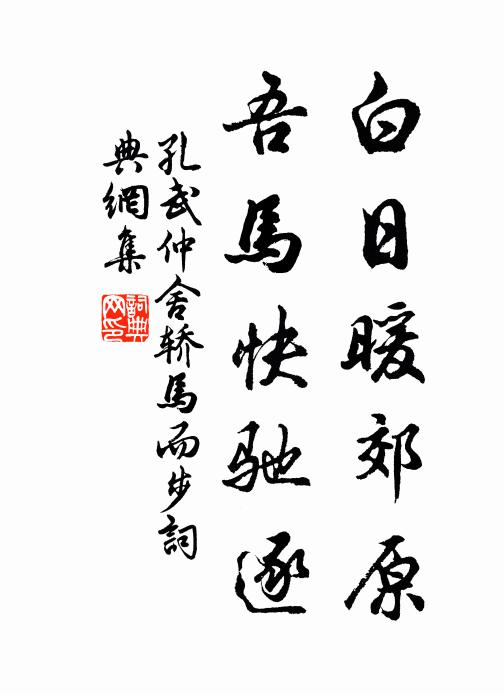 白日暖郊原
吾馬快馳逐
孔武仲舍轿馬而步詞
典網集
詞典
网印